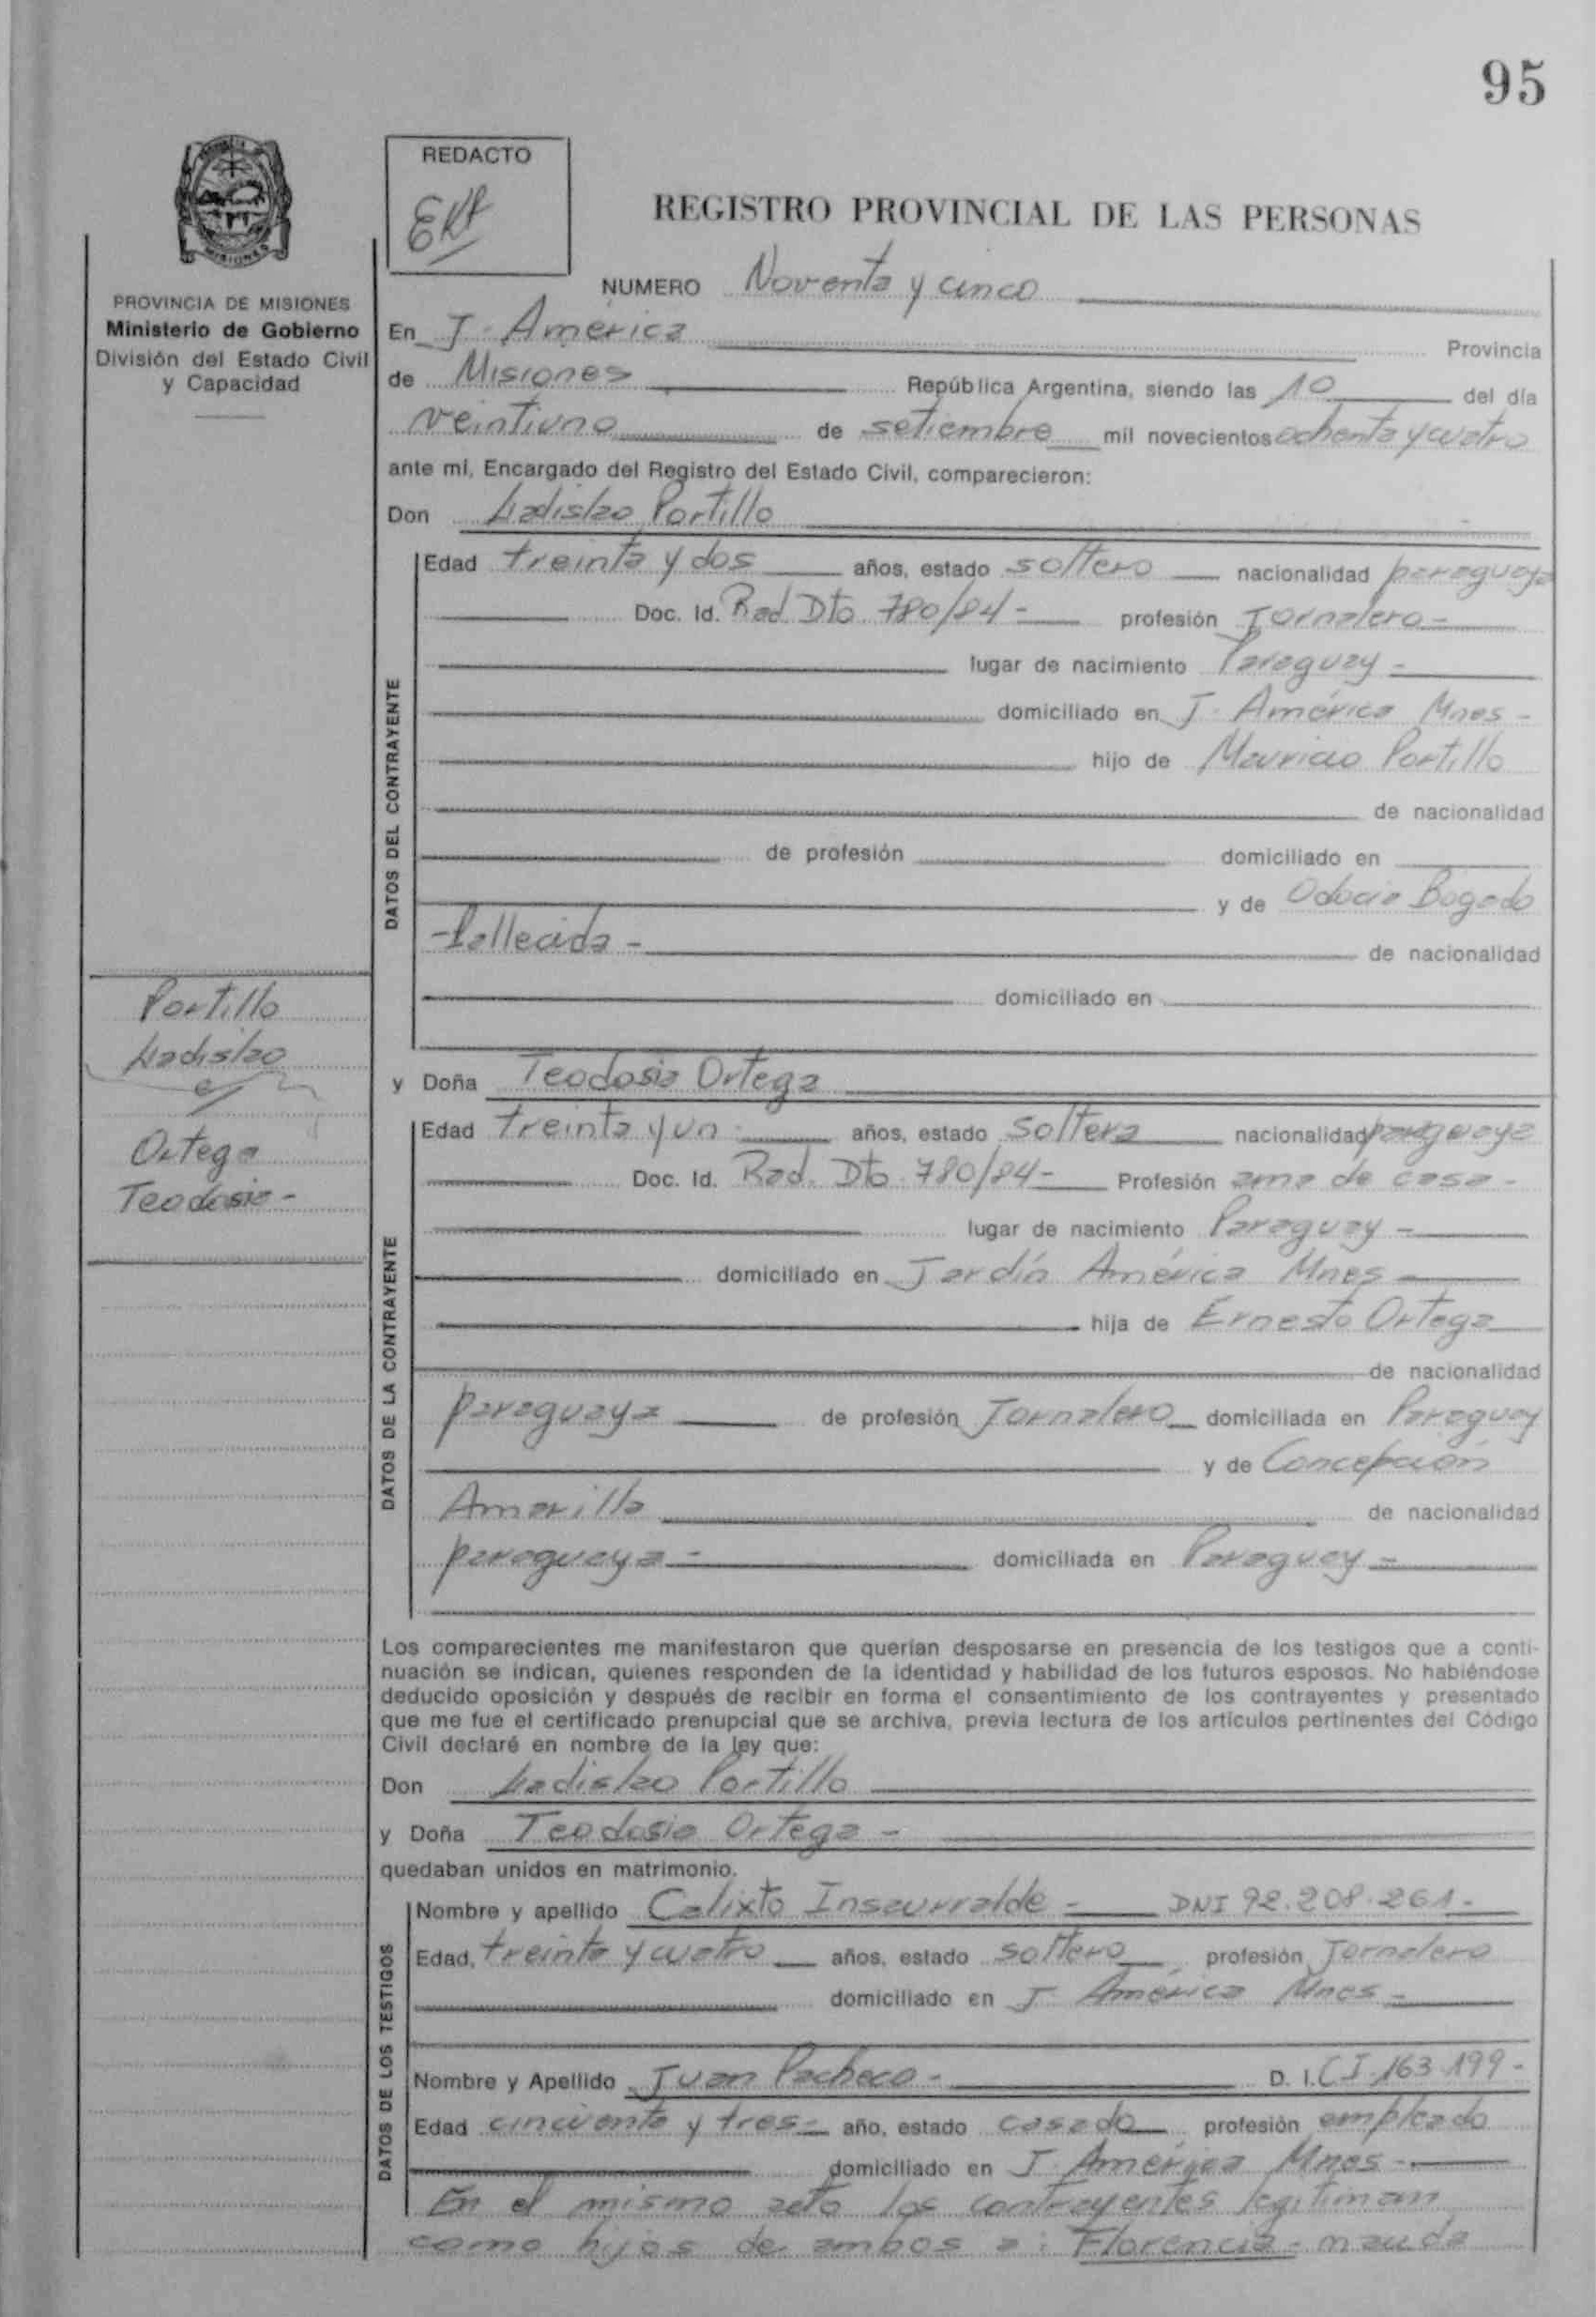 95
REDACTO
REGISTRO PROVINCIAL DE LAS PERSONAS
NUMERO Noventa y cinco
MISIONES
PROVINCIA DE MISIONES
Ministerio de Gobierno
División del Estado Civil
y Capacidad
En J. América Provincia
de Misiones República Argentina, siendo las 10 del día
veintiuno de setiembre mil novecientos ochenta y cuatro
ante mí, Encargado del Registro del Estado Civil, comparecieron:
Don Ladislao Portillo
DATOS DEL CONTRAYENTE
Edad treinta y dos años, estado soltero nacionalidad paraguaya
Doc. Id. Rad. Dto. 780/84 - profesión Jornalero -
lugar de nacimiento Paraguay -
domiciliado en J. América Mnes -
hijo de Mauricio Portillo
de nacionalidad
de profesión domiciliado en
y de Odocia Bogado
- fallecida - de nacionalidad
domiciliado en
Portillo
Ladislao
y
Ortega
Teodosia -
y Doña Teodosia Ortega
DATOS DE LA CONTRAYENTE
Edad treinta y un años, estado soltera nacionalidad paraguaya
Doc. Id. Rad. Dto. 780/84 - Profesión ama de casa -
lugar de nacimiento Paraguay -
domiciliado en Jardín América Mnes -
hija de Ernesto Ortega
de nacionalidad
paraguaya de profesión Jornalero domiciliada en Paraguay
y de Concepción
Amarilla de nacionalidad
paraguaya - domiciliada en Paraguay -
Los comparecientes me manifestaron que querían desposarse en presencia de los testigos que a conti-
nuación se indican, quienes responden de la identidad y habilidad de los futuros esposos. No habiéndose
deducido oposición y después de recibir en forma el consentimiento de los contrayentes y presentado
que me fue el certificado prenupcial que se archiva, previa lectura de los artículos pertinentes del Código
Civil declaré en nombre de la ley que:
Don Ladislao Portillo
y Doña Teodosia Ortega -
quedaban unidos en matrimonio.
DATOS DE LOS TESTIGOS
Nombre y apellido Calixto Insaurralde - DNI 92.208.261 -
Edad, treinta y cuatro años, estado soltero profesión Jornalero
domiciliado en J. América Mnes -
Nombre y Apellido Juan Pacheco - D. I. C I. 163.199 -
Edad cincuenta y tres - año, estado casado profesión empleado
domiciliado en J. América Mnes -
En el mismo acto los contrayentes legitiman
como hijos de ambos a: Florencia - nacida